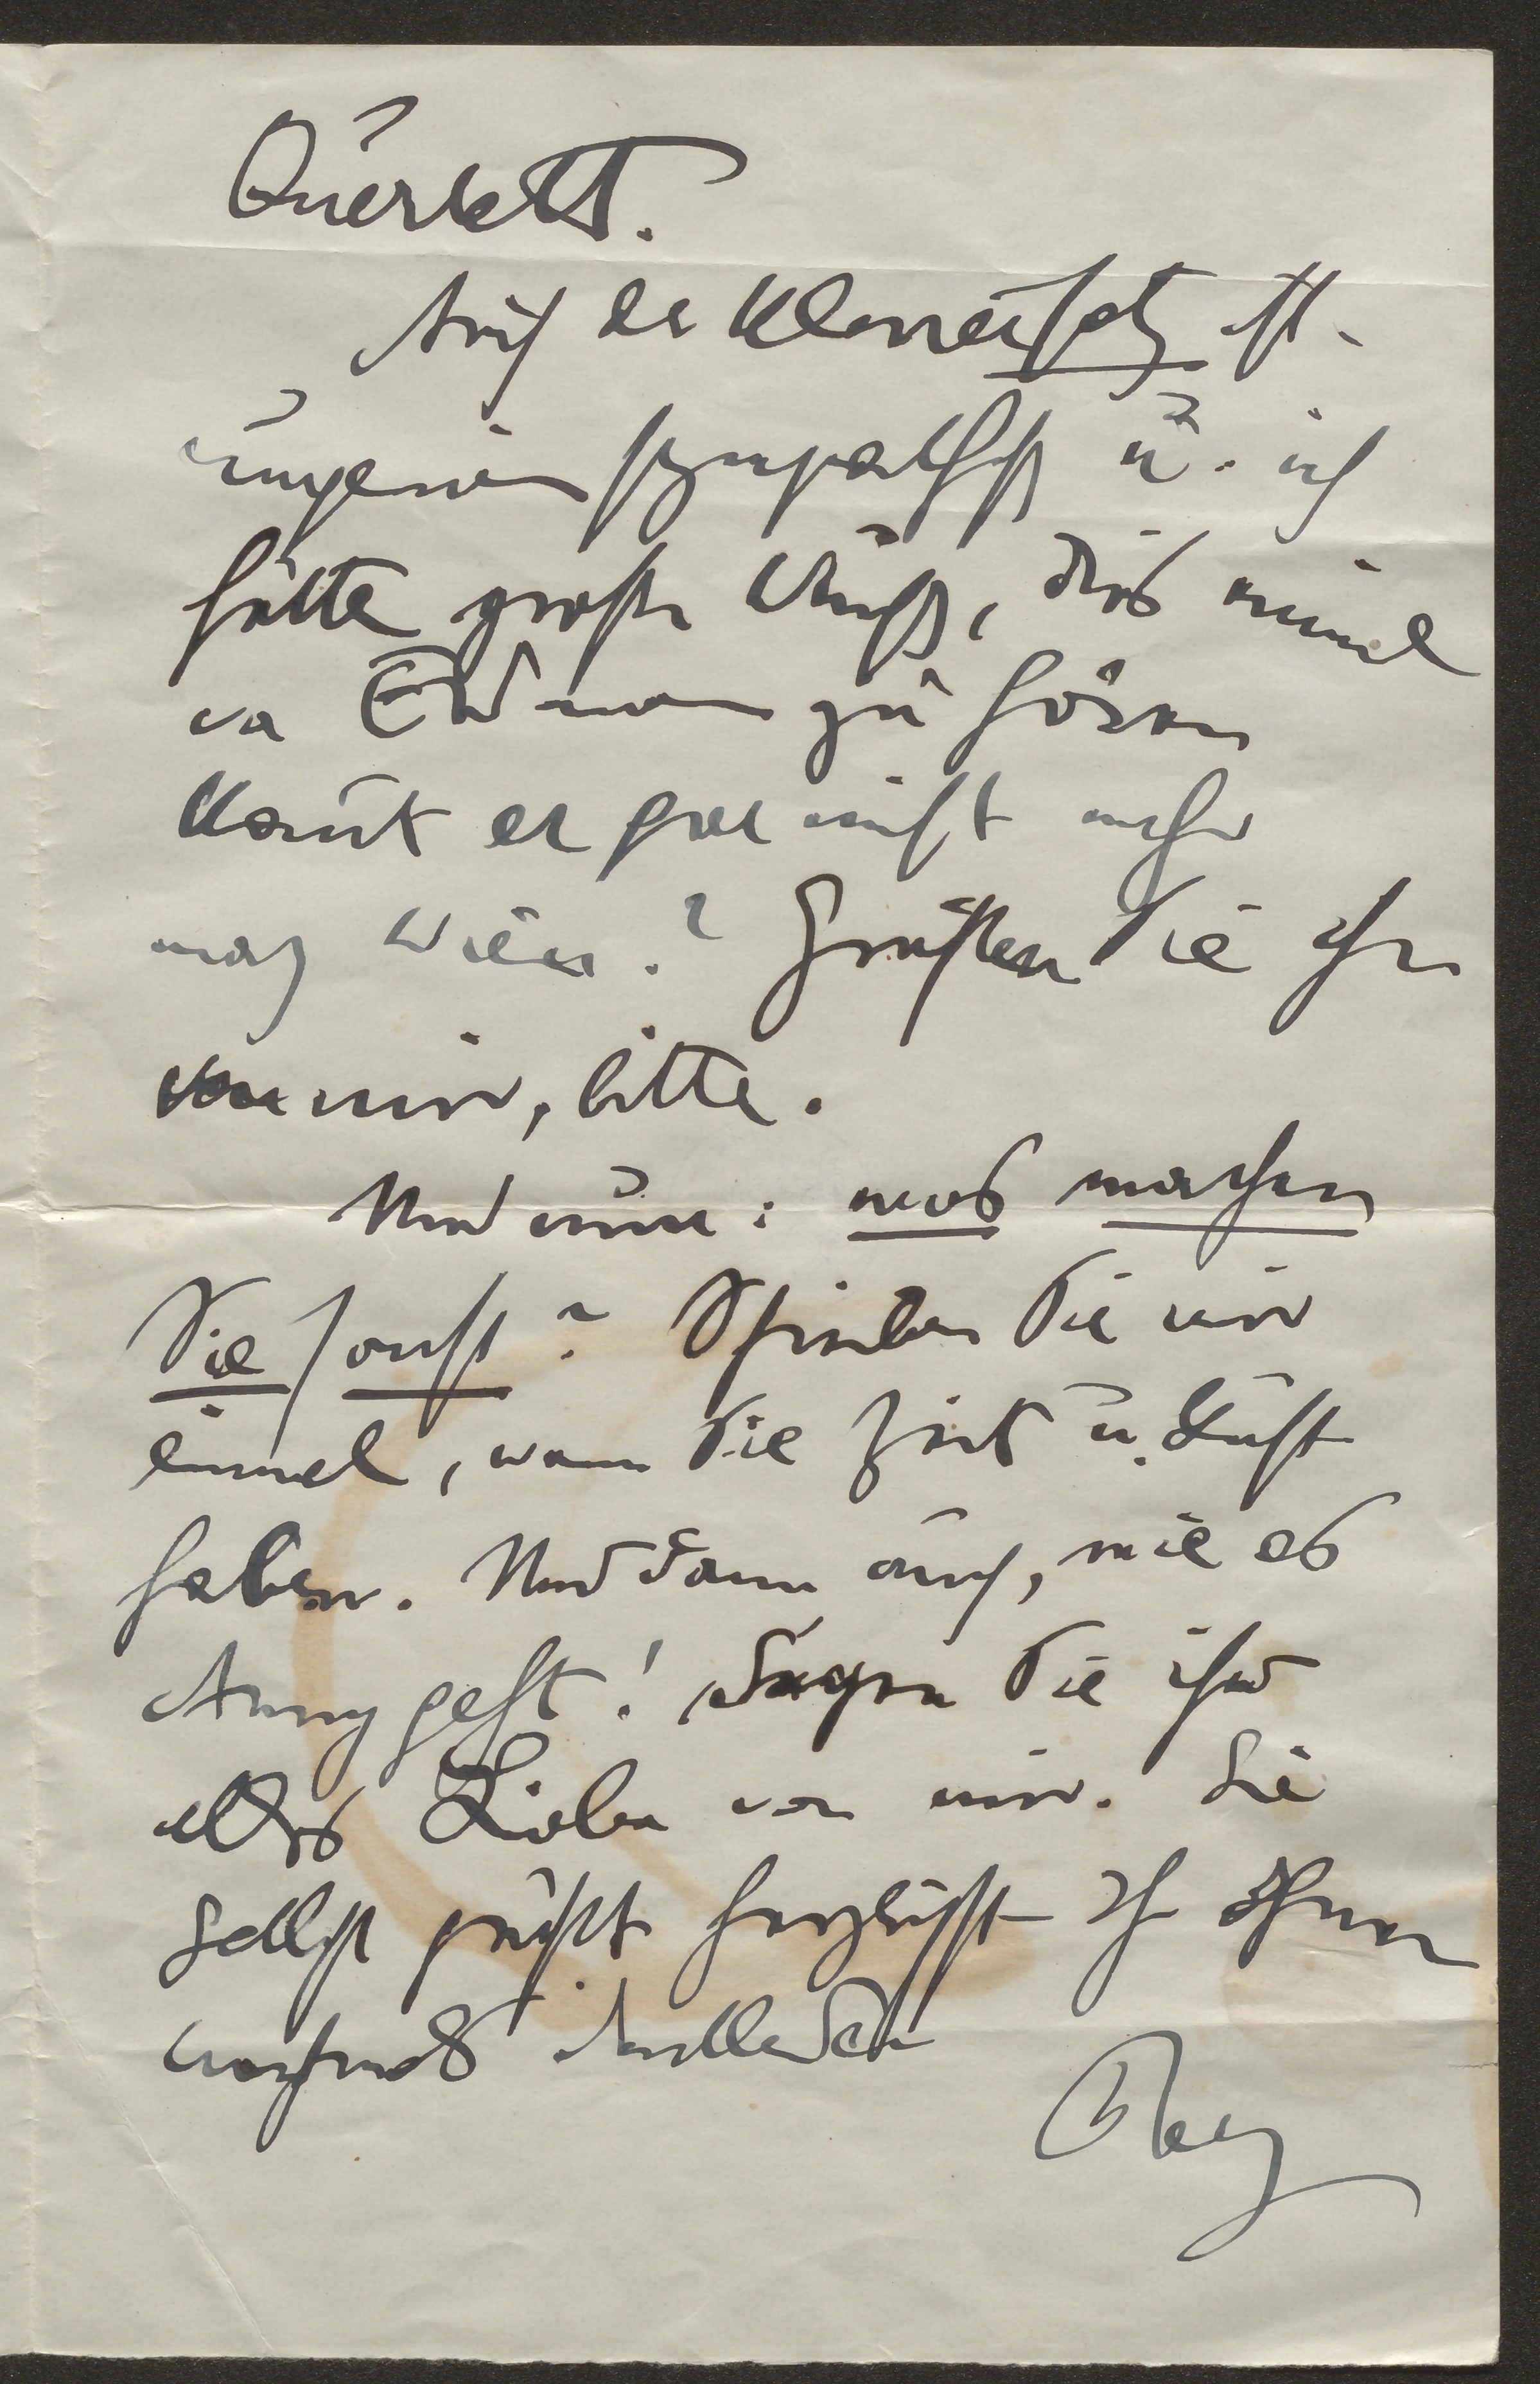 Querbett.
Auch der Klaviersatz ist
ungemein sympathisch u. ich
hätte große Lust, dies einmal
von Erdmann zu hören
Kommt er gar nicht mehr
nach Wien? Grüßen Sie ihn
von mir, bitte.
Und nun: was machen
Sie sonst? Schreiben Sie mir
einmal, wann Sie Zeit u. Lust
haben. Und dann auch, wie es
Anny geht! Sagen Sie ihr
alles Liebe von mir. Sie
selbst grüßt herzlichst Ihr Ihnen